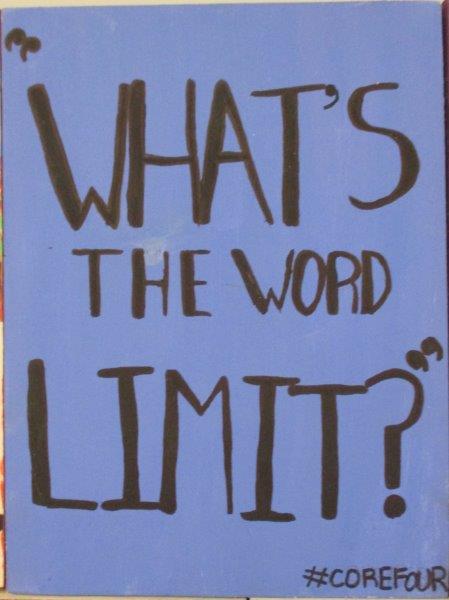 "WHAT'S
THE WORD
LIMIT?"
#COREFOUR